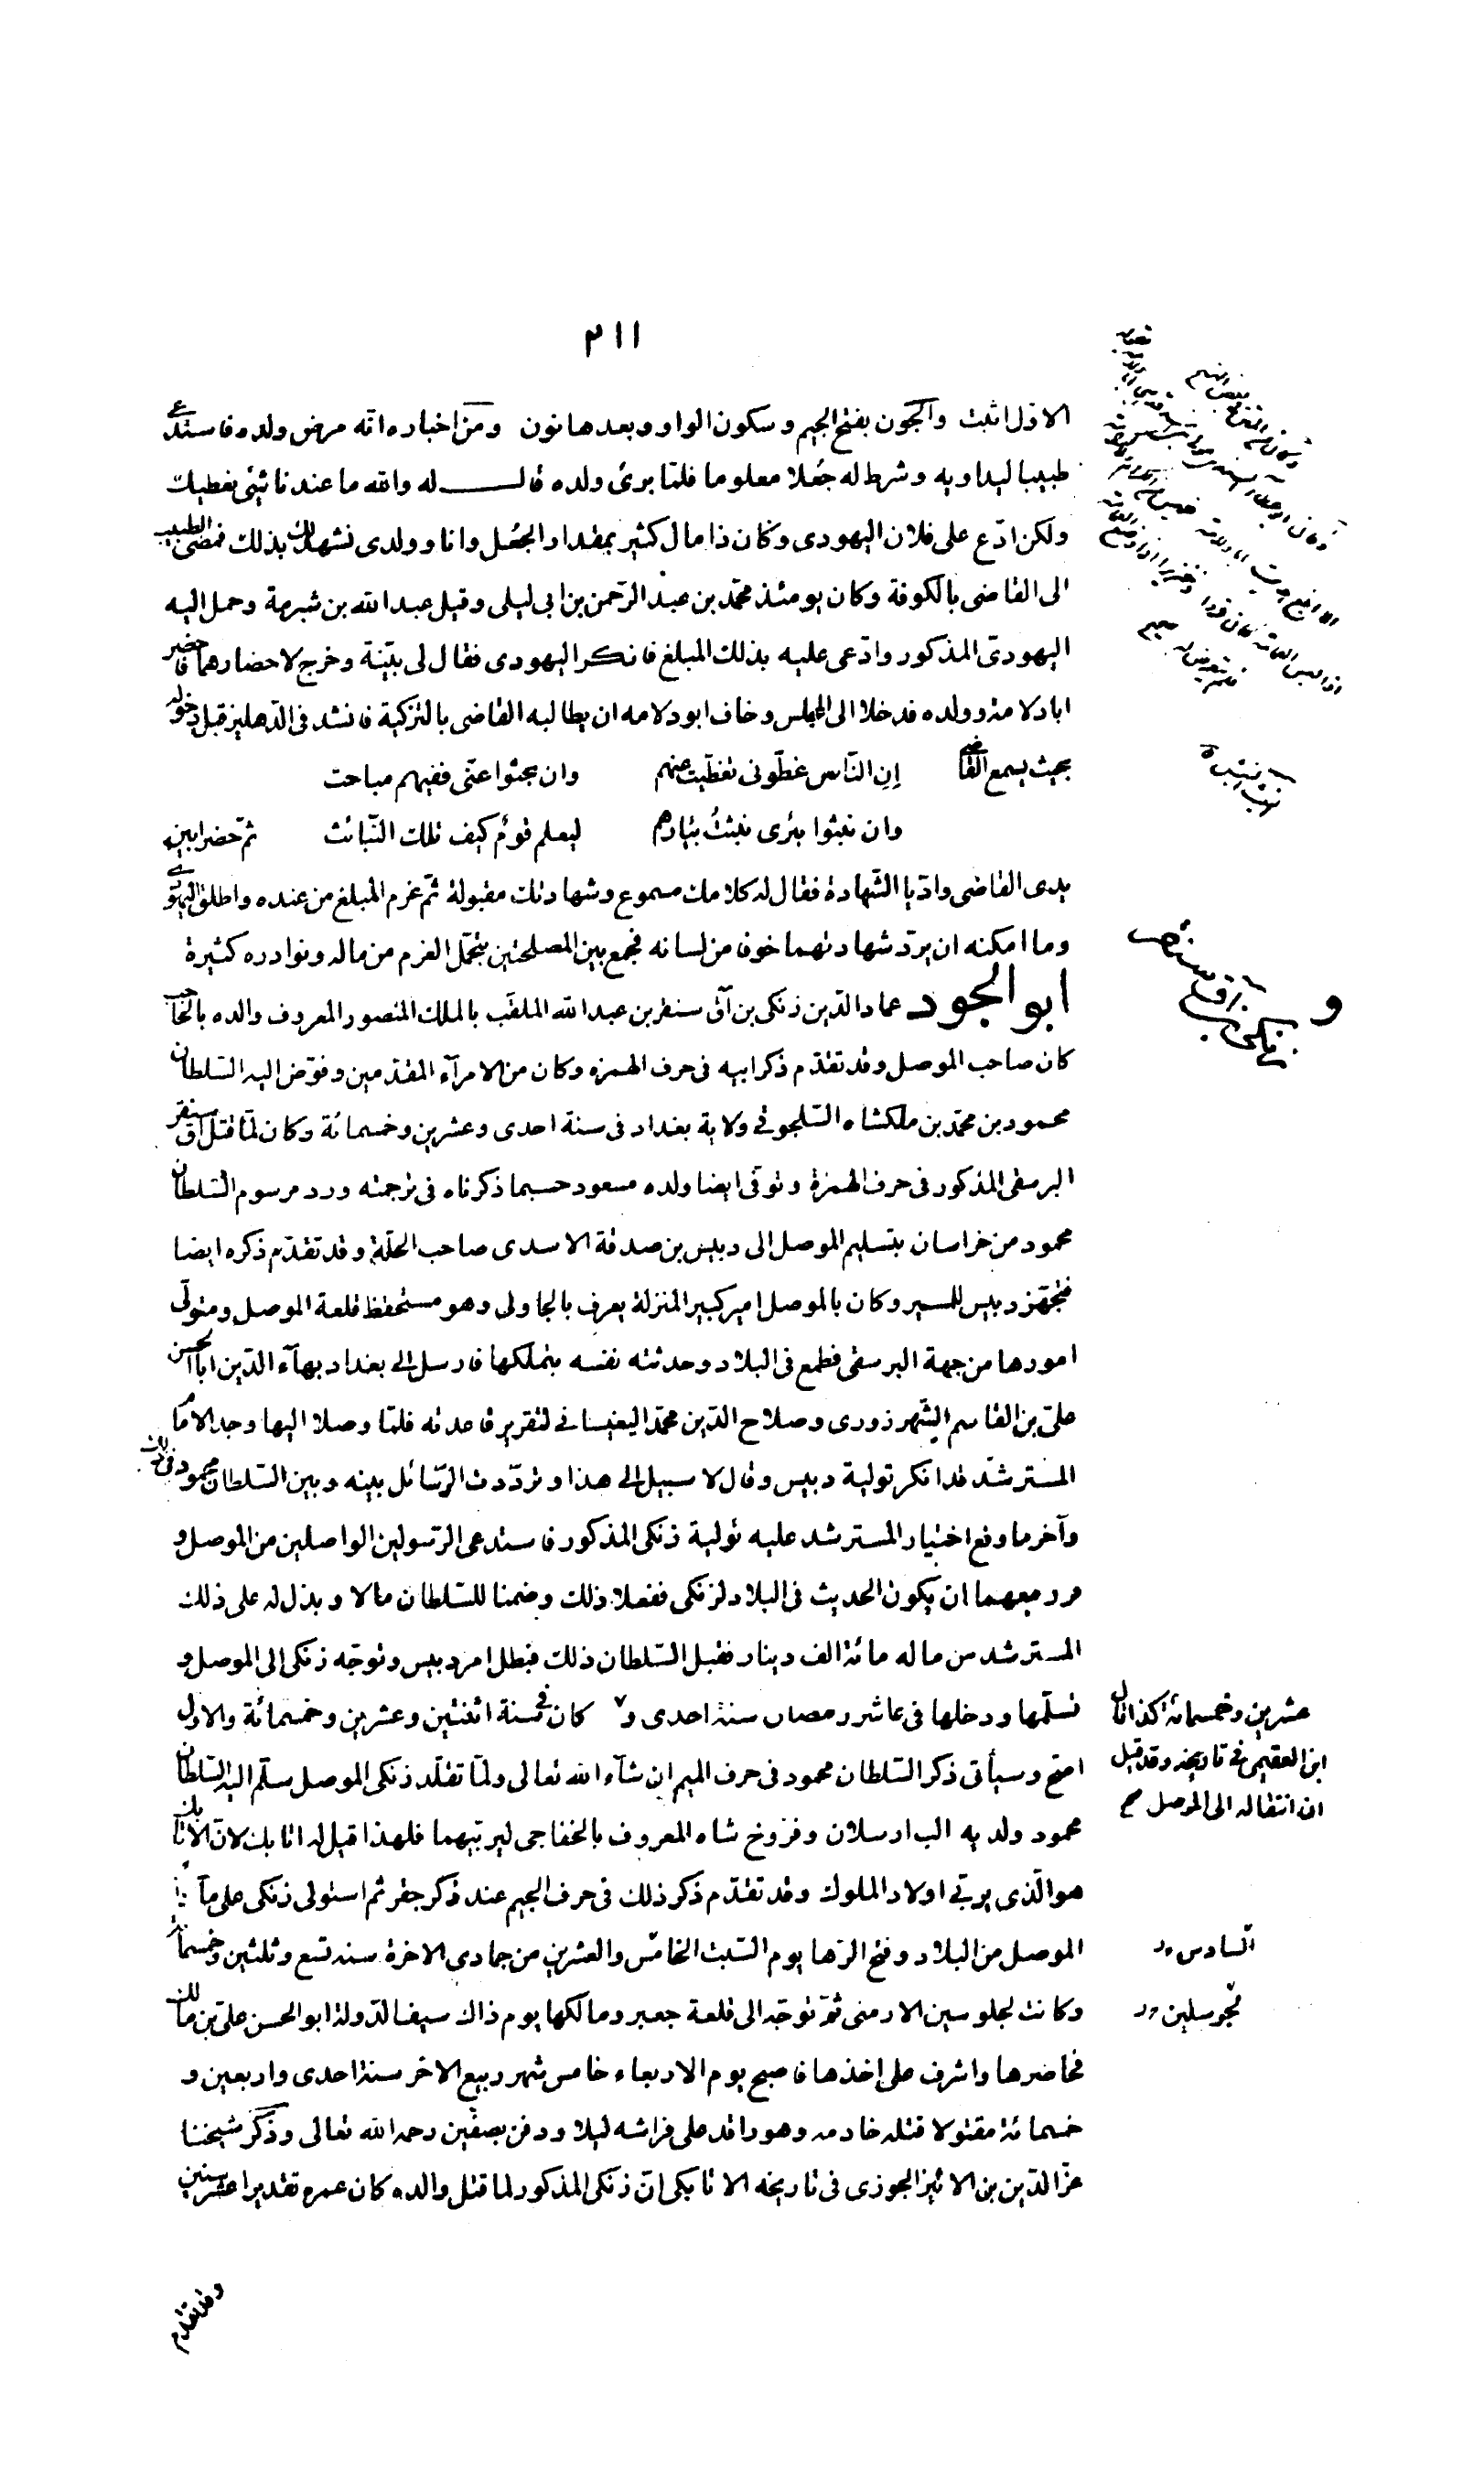 ٢١١
الاول اثبت والجون بفتح الجيم وسكون الواو وبعدها نون ومن اخباره انه مرض ولده فاستدعى
طبيبا ليداويه وشرط له جعلا معلوما فلما برئ ولده قال له والله ما عندنا شئ نعطيك
ولكن ادّع على فلان اليهودى وكان ذا مال كثير بمقدار الجعل وانا وولدى نشهد لك بذلك فمضى الطبيب
الى القاضى بالكوفة وكان يومئذ محمد بن عبد الرحمن بن ابى ليلى وقيل عبد الله بن شبرمة وحمل اليه
اليهودىّ المذكور وادّعى عليه بذلك المبلغ فانكر اليهودى فقال لى بيّنة وخرج لاحضارهما فاحضر
ابا دلامة وولده فدخلا الى المجلس وخاف ابو دلامه ان يطالبه القاضى بالتزكية فانشد فى الدهليز قبل دخوله
بحيث يسمع القاضى إن النّاس غطّونى تغطّيت عنهم وان بحثوا عنّى ففيهم مباحث
وان نبثوا بئرى نبثتُ بئارهم ليعلم قومٌ كيف تلك النّبائث ثمّ حضرا بين
يدى القاضى وادّيا الشّهادة فقال له كلامك مسموع وشهادتك مقبولة ثمّ غرم المبلغ من عنده واطلق اليهودى
وما امكنه ان يردّ شهادتهما خوفا من لسانه فجمع بين المصلحتين بتحمّل الغرم من ماله ونوادره كثيرة
ابو الجود عماد الدّين زنكى بن آق سنقر بن عبد الله الملقّب بالملك المنصور المعروف والده بالحاجب
كان صاحب الموصل وقد تقدّم ذكر ابيه فى حرف الهمزه وكان من الامرآء المقدّمين وفوّض اليه السّلطان
محمود بن محمّد بن ملكشاه السّلجوقى ولاية بغداد فى سنة احدى وعشرين وخمسمائة وكان لمّا قتل آق سنقر
البرسقى المذكور فى حرف الهمزة وتوفّى ايضا ولده مسعود حسبما ذكرناه فى ترجمته ورد مرسوم السّلطان
محمود من خراسان بتسليم الموصل الى دبيس بن صدقة الاسدى صاحب الحلّة وقد تقدّم ذكره ايضا
فتجهّز دبيس للمسير وكان بالموصل امير كبير المنزلة يعرف بالجاولى وهو مستحفظ قلعة الموصل ومتولّى
امورها من جهة البرسقى فطمع فى البلاد وحدثته نفسه بتملكها فارسل الى بغداد بهآء الدّين ابا الحسن
علىّ بن القاسم الشّهرزورى وصلاح الدّين محمّد اليغيسانى لتقرير قاعدته فلمّا وصلا اليها وجدا الامام
المسترشد قد انكر تولية دبيس وقال لا سبيل الى هذا وتردّدت الرّسائل بينه وبين السّلطان محمود فى ذلك
وآخر ما وقع اختيار المسترشد عليه تولية زنكى المذكور فاستدعى الرّسولين الواصلين من الموصل و
قرر معهما ان يكون الحديث فى البلاد لزنكى ففعلا ذلك وضمنا للسّلطان مالا وبذل له على ذلك
المسترشد من ماله مائة الف دينار فقبل السّلطان ذلك فبطل امر دبيس وتوجّه زنكى الى الموصل و
تسلّمها ودخلها فى عاشر رمضان سنة احدى و٧ كان فى سنة اثنتين وعشرين وخمسمائة والاول
اصحّ وسيأتى ذكر السّلطان محمود فى حرف الميم ان شآء الله تعالى ولمّا تقلّد زنكى الموصل سلّم اليه السّلطان
محمود ولديه الب ارسلان وفرّوخ شاه المعروف بالخفاجى ليربّيهما فلهذا قيل له اتابك لانّ الاتابك
هو الّذى يربّى اولاد الملوك وقد تقدّم ذكر ذلك فى حرف الجيم عند ذكر جقر ثم استولى زنكى على ما
الموصل من البلاد وفتح الرّها يوم السّبت الخامس والعشرين من جمادى الاخرة سنة تسع وثلثين وخمسمائة
وكانت لجلوسين الارمنى ثمّ توجّه الى قلعة جعبر ومالكها يوم ذاك سيف الدّولة ابو الحسن علىّ بن مالك
فحاصرها واشرف على اخذها فاصبح يوم الاربعاء خامس شهر ربيع الاخر سنة احدى واربعين و
خمسمائة مقتولا قتله خادمه وهو راقد على فراشه ليلا ودفن بصفّين رحمه الله تعالى وذكر شيخنا
عزّ الدّين بن الاثير الجوزى فى تاريخه الاتابكى انّ زنكى المذكور لما قتل والده كان عمره تقديرا عشر سنين
وقد تقدم
نبثت البئر
و
زنكى بن آق سنقر
عشرين وخمسمائة كذا قال
ابن العقيمى فى تاريخه وقد قيل
ان انتقاله الى الموصل صح
السادس
لجوسلين